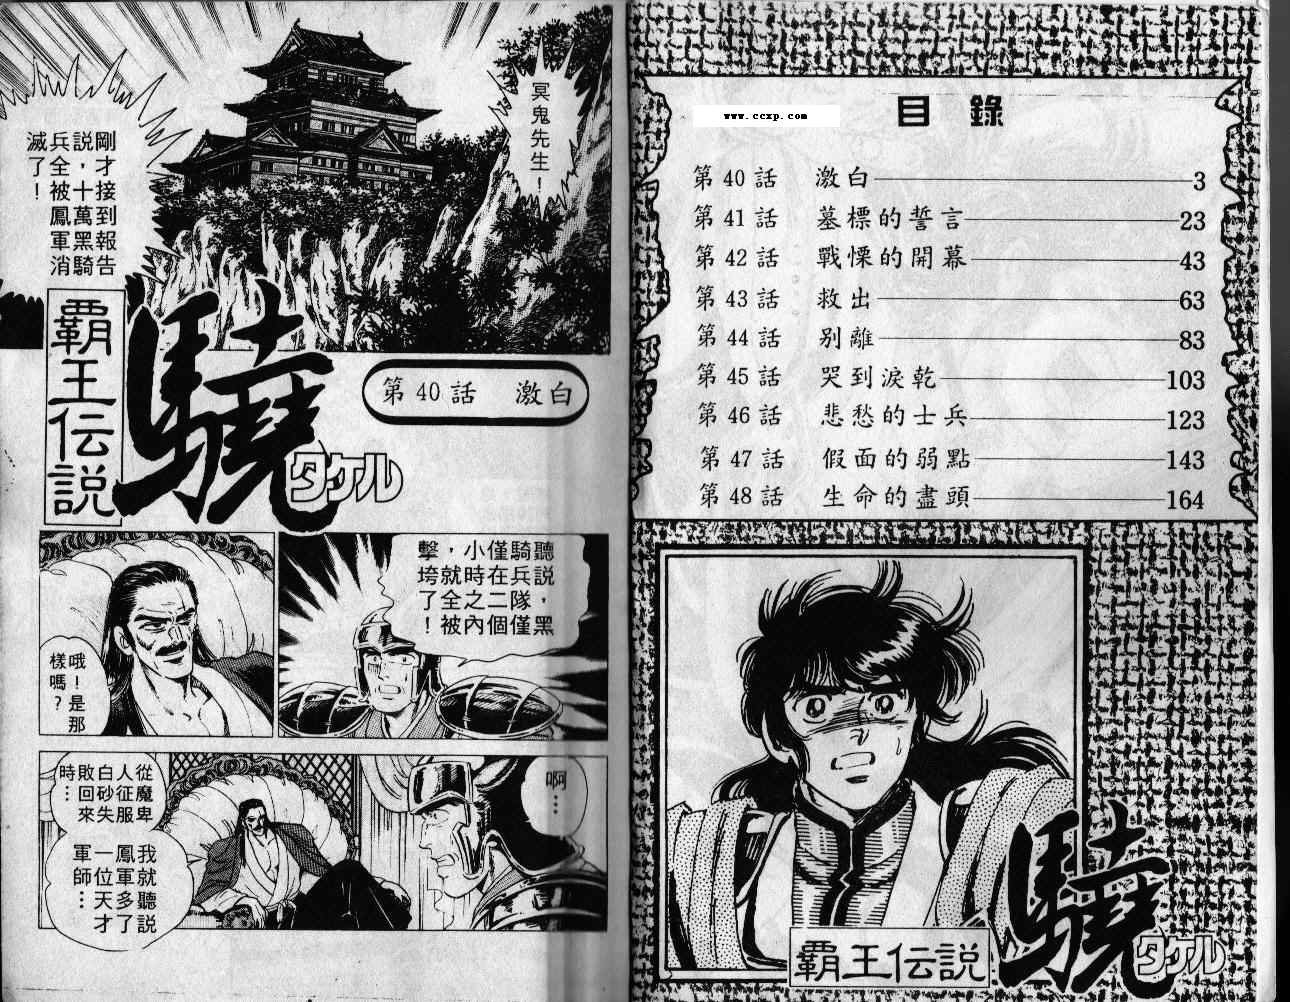 www.ccxp.com
目錄
第40話 激白 3
第41話 墓標的誓言 23
第42話 戰慄的開幕 43
第43話 救出 63
第44話 別離 83
第45話 哭到淚乾 103
第46話 悲愁的士兵 123
第47話 假面的弱點 143
第48話 生命的盡頭 164
覇王伝説
驍
タケル
冥鬼先生！
剛才接到報告
說，十萬黑騎
兵全被鳳軍消
滅了！
覇王伝説
驍
タケル
第40話 激白
聽說，黑
騎兵隊僅
僅在二個
小時之內
，就全被
擊垮了！
哦！是那
樣嗎？
啊…
從魔卑
人征服
白砂失
敗回來
時…
我就聽說
鳳軍多了
一位天才
軍師…